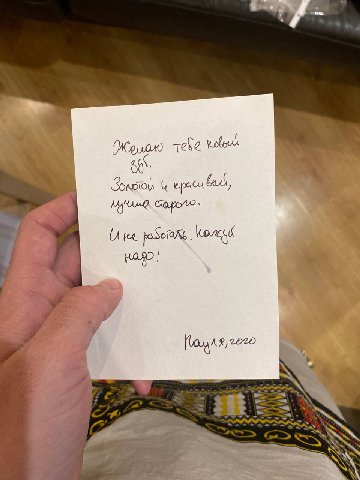 Желаю тебе новый
зуб.
Золотой и красивый,
лучше старого.
И не работать.
надо!
2020